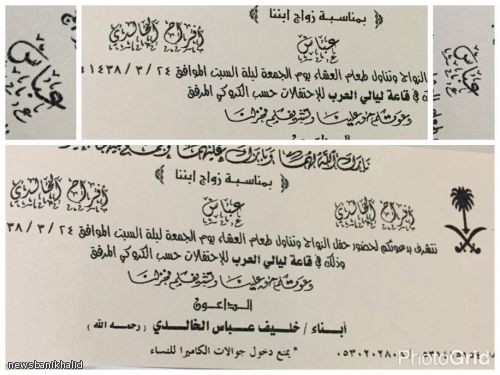 ﴿ بمناسبة زواج ابننا ﴾
أفراح الخالدي
عباس
الزواج وتناول طعام العشاء يوم الجمعة ليلة السبت الموافق ٢٤ / ٣ / ١٤٣٨
في قاعة ليالي العرب للإحتفالات حسب الكروكي المرفق
وعوتكم حق علينا وتشريفكم فخر لنا
عباس
عباس
﴿ بمناسبة زواج ابننا ﴾
أفراح الخالدي
عباس
أفراح الخالدي
نتشرف بدعوتكم لحضور حفل الزواج وتناول طعام العشاء يوم الجمعة ليلة السبت الموافق ٢٤ / ٣ / ٣٨
وذلك في قاعة ليالي العرب للإحتفالات حسب الكروكي المرفق
الداعون
أبناء / خليف عباس الخالدي ( رحمه الله )
* يمنع دخول جوالات الكاميرا للنساء
newsbanikhalid
PhotoGrid